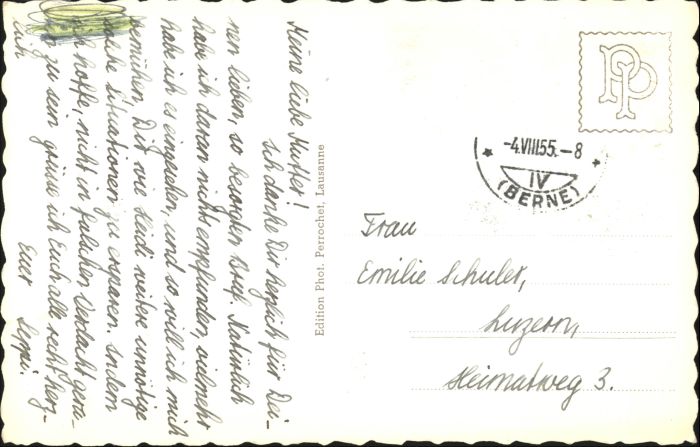 Meine liebe Mutter!
Ich danke Dir herzlich für Dei-
nen lieben, so besorgten Brief. Natürlich
habe ich daran nicht empfunden, vielmehr
habe ich es eingesehen, und so will ich mich
bemühen, Dir wie Heidi weitere unnötige
solche Situationen zu ersparen. Indem
ich hoffe, nicht in falschen Verdacht gera-
zu sein grüsse ich Euch alle recht herz-
lich
Euer
Edition Phot. Perrochet, Lausanne
PP
-4.VIII.55.-8
IV
(BERNE)
Frau
Emilie Schuler,
Luzern,
Heimatweg 3.